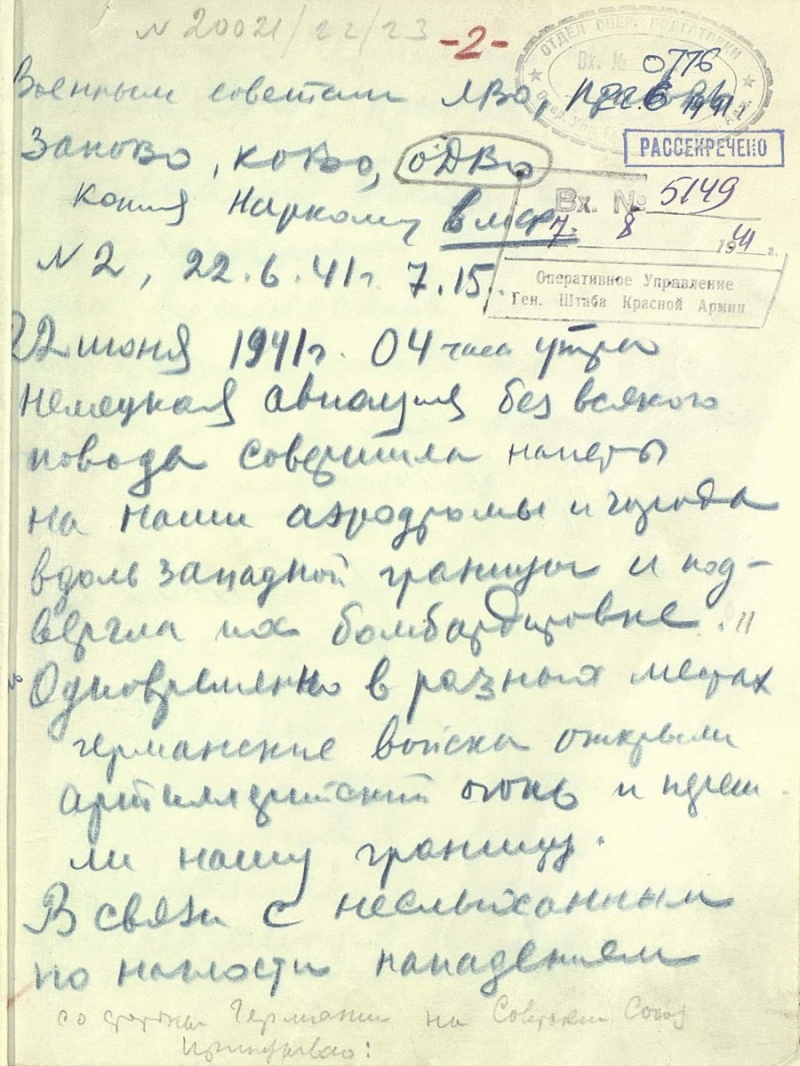 N 20021/22/23
-2-
ОТДЕЛ ОПЕР. ПОДГОТОВКИ
Вх. №
0776
22.6 1941 г
Военным советам ЛВО, ПрибОВО
РАССЕКРЕЧЕНО
Заново, КОВО, ОДВО
Вх. № 5149
Копия Наркому ВМФ
7. 8 1941 г.
N 2, 22.6.41г. 7.15.
Оперативное Управление
Ген. Штаба Красной Армии
22 июня 1941г. 04 часа утра
немецкая авиация без всякого
повода совершила налеты
на наши аэродромы и города
вдоль западной границы и под-
вергла их бомбардировке.
Одновременно в разных местах
германские войска открыли
артиллерийский огонь и переш
ли нашу границу.
В связи с неслыханным
по наглости нападением
со стороны Германии на Советский Союз
Приказываю: